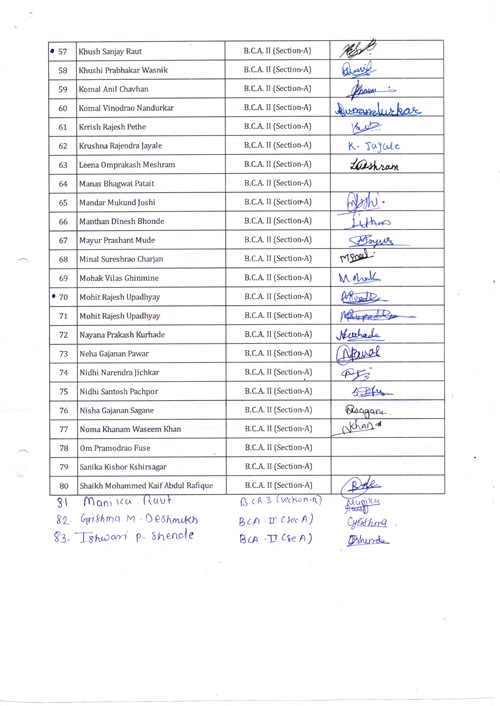 57 Khush Sanjay Raut B.C.A. II (Section-A)
58 Khushi Prabhakar Wasnik B.C.A. II (Section-A)
59 Komal Anil Chavhan B.C.A. II (Section-A)
60 Komal Vinodrao Nandurkar B.C.A. II (Section-A)
61 Krrish Rajesh Pethe B.C.A. II (Section-A)
62 Krushna Rajendra Jayale B.C.A. II (Section-A) K. Jayale
63 Leena Omprakash Meshram B.C.A. II (Section-A)
64 Manas Bhagwat Patait B.C.A. II (Section-A)
65 Mandar Mukund Joshi B.C.A. II (Section-A)
66 Manthan Dinesh Bhonde B.C.A. II (Section-A)
67 Mayur Prashant Mude B.C.A. II (Section-A)
68 Minal Sureshrao Charjan B.C.A. II (Section-A)
69 Mohak Vilas Ghinmine B.C.A. II (Section-A) Mohak
70 Mohit Rajesh Upadhyay B.C.A. II (Section-A)
71 Mohit Rajesh Upadhyay B.C.A. II (Section-A)
72 Nayana Prakash Kurhade B.C.A. II (Section-A)
73 Neha Gajanan Pawar B.C.A. II (Section-A)
74 Nidhi Narendra Jichkar B.C.A. II (Section-A)
75 Nidhi Santosh Pachpor B.C.A. II (Section-A)
76 Nisha Gajanan Sagane B.C.A. II (Section-A)
77 Noma Khanam Waseem Khan B.C.A. II (Section-A) Khan
78 Om Pramodrao Fuse B.C.A. II (Section-A)
79 Sanika Kishor Kshirsagar B.C.A. II (Section-A)
80 Shaikh Mohammed Kaif Abdul Rafique B.C.A. II (Section-A)
81 Raut B.C.A 3 (Section-A)
82. Grishma M. Deshmukh BCA - II (Sec A)
83. Ishwari P. Shende BCA - II (Sec A)